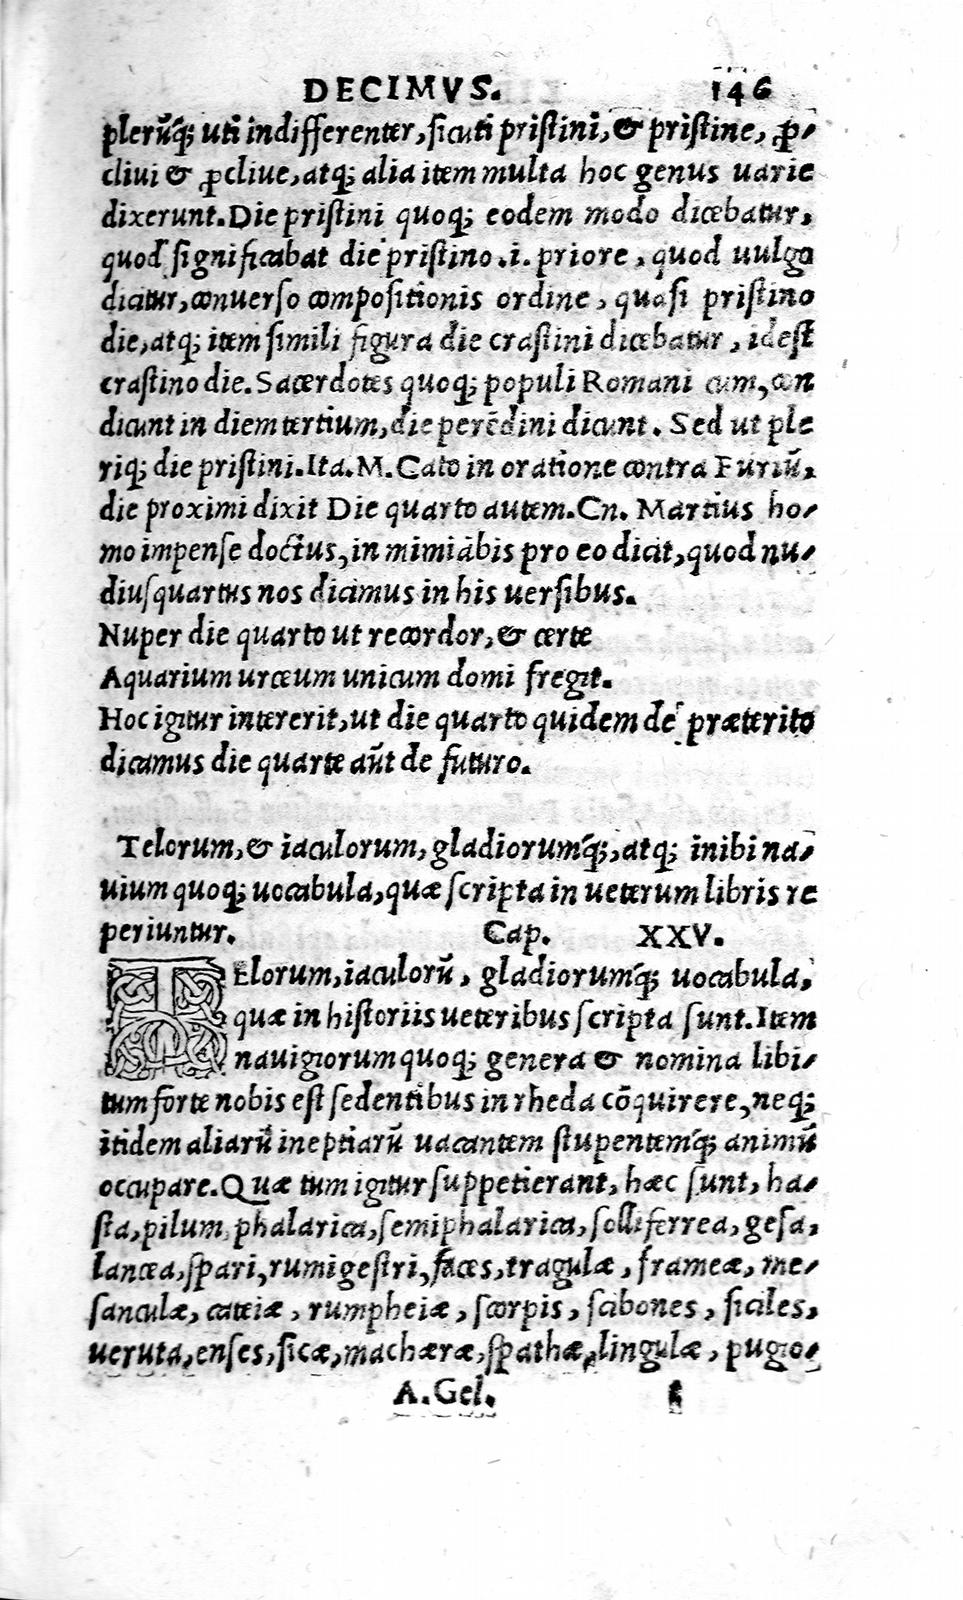 DECIMVS. 146
plerūq; uti indifferenter, sicuti pristini, & pristine, ꝓ-
cliui & ꝓcliue, atq; alia item multa hoc genus uarie
dixerunt. Die pristini quoq; eodem modo dicebatur,
quod significabat die pristino .i. priore, quod uulgo
dicitur, conuerso compositionis ordine, quasi pristino
die, atq; item simili figura die crastini dicebatur, idest
crastino die. Sacerdotes quoq; populi Romani cum, con
dicunt in diem tertium, die perēdini dicunt. Sed ut ple
riq; die pristini. Ita. M. Cato in oratione contra Furiū,
die proximi dixit Die quarto autem. Cn. Martius ho-
mo impense doctus, in mimiābis pro eo dicit, quod nu-
diusquartus nos dicimus in his uersibus.
Nuper die quarto ut recordor, & certe
Aquarium urceum unicum domi fregit.
Hoc igitur intererit, ut die quarto quidem de præterito
dicamus die quarte aūt de futuro.
Telorum, & iaculorum, gladiorumq́;, atq; inibi na-
uium quoq; uocabula, quæ scripta in ueterum libris re
periuntur. Cap. XXV.
TElorum, iaculorū, gladiorumq́; uocabula,
quæ in historiis ueteribus scripta sunt. Item
nauigiorum quoq; genera & nomina libi-
tum forte nobis est sedentibus in rheda cōquirere, neq;
itidem aliarū ineptiarū uacantem stupentemq́; animū
occupare. Quæ tum igitur suppetierant, hæc sunt, ha-
sta, pilum, phalarica, semiphalarica, solliferrea, gesa,
lancea, spari, rumigestri, faces, tragulæ, frameæ, me-
sanculæ, cateiæ, rumpheiæ, scorpis, scibones, siciles,
ueruta, enses, sicæ, machæræ, spathæ, lingulæ, pugio-
A. Gel. ſ